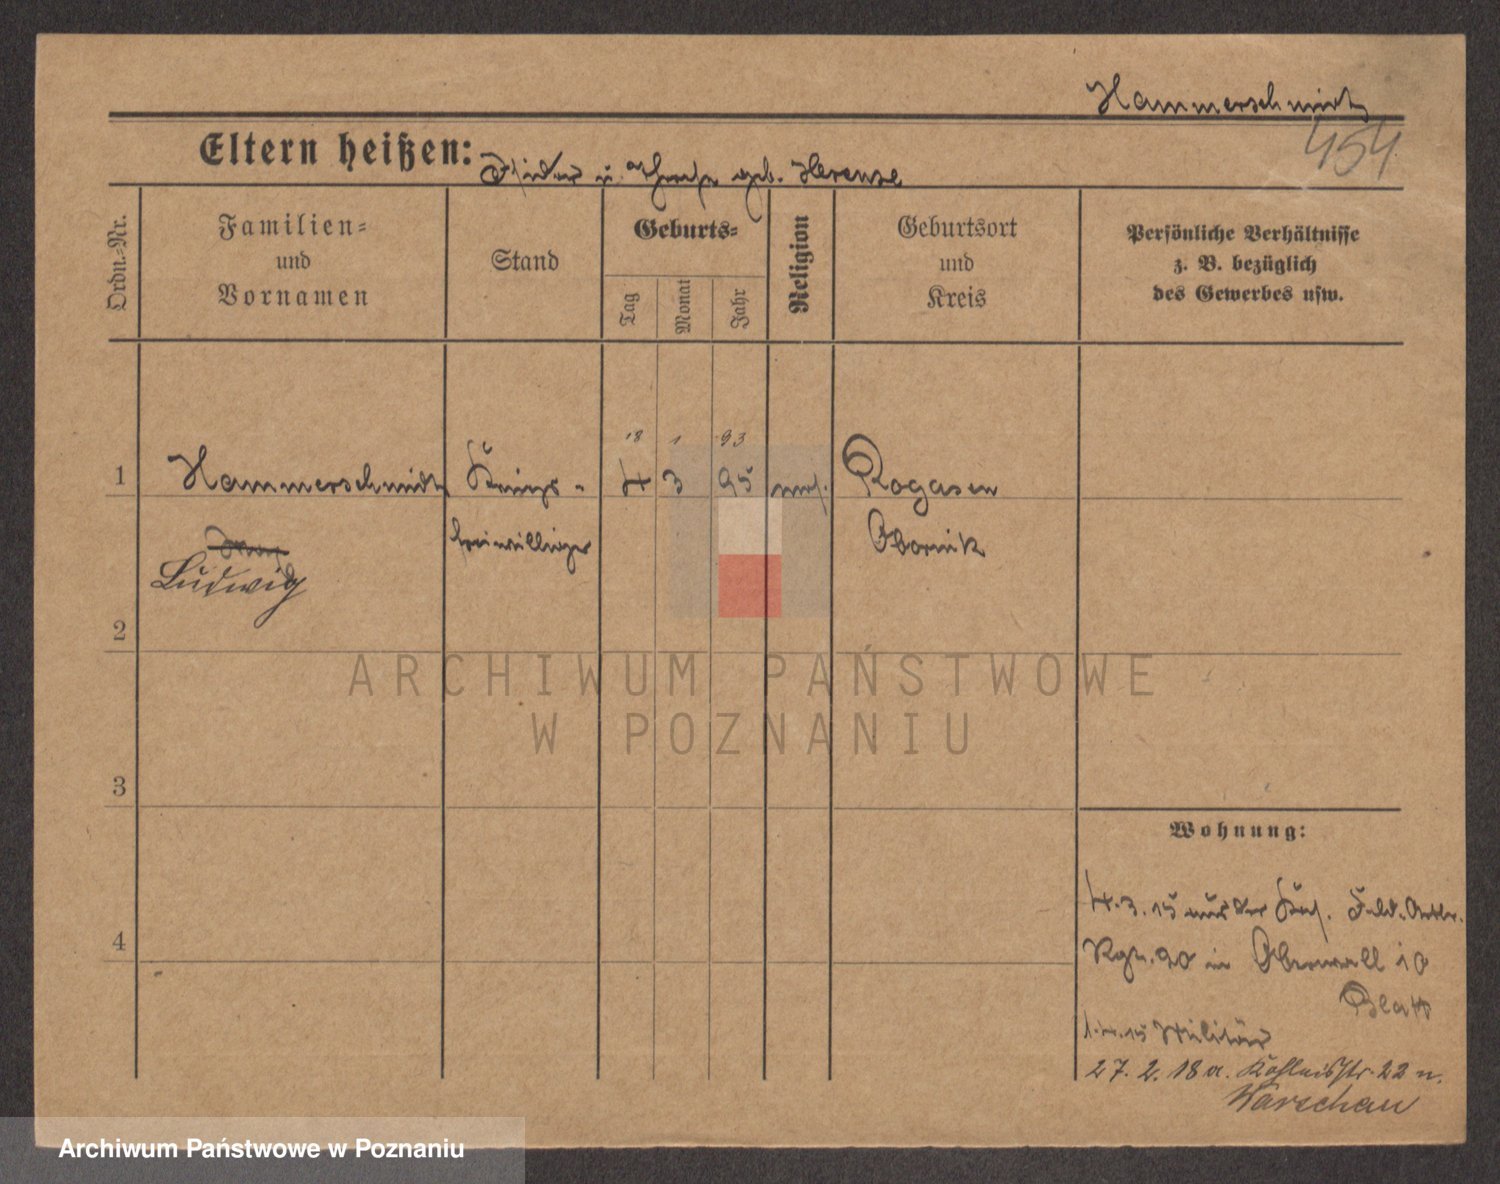 Hammerschmidt
454
Eltern heißen: u. geb.
Ordn.=Nr.
Familien=
und
Vornamen
Stand
Geburts=
Tag
Monat
Jahr
Religion
Geburtsort
und
Kreis
Persönliche Verhältnisse
z. B. bezüglich
des Gewerbes usw.
18 1 93
1 Hammerschmidt Kriegs- 4 3 95 mos. Rogasen
freiwilliger Obornik
Ludwig
2
3
4
Wohnung:
4.3.15 aus der Feld. Artlr.
Rgt. 20 in Oberwall 10
Blatt
1.4.15 Militär
27. 2. 18 a. 22 n.
Warschau
ARCHIWUM PAŃSTWOWE
W POZNANIU
Archiwum Państwowe w Poznaniu